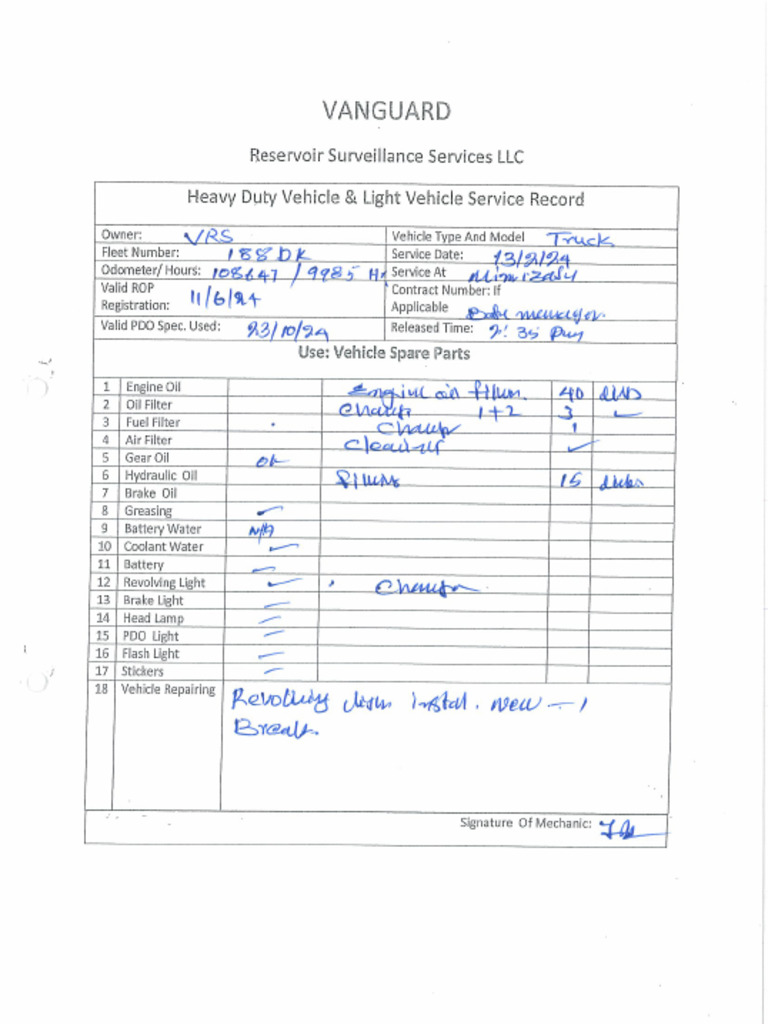 VANGUARD
Reservoir Surveillance Services LLC
Heavy Duty Vehicle & Light Vehicle Service Record
Owner: VRS
Vehicle Type And Model Truck
Fleet Number: 188 DK
Service Date: 13/2/24
Odometer/ Hours: 108647 / 9985 Hr
Service At
Valid ROP Registration: 11/6/24
Contract Number: If Applicable
Valid PDO Spec. Used: 23/10/24
Released Time: 2:35 pm
Use: Vehicle Spare Parts
1 Engine Oil Engine oil 40
2 Oil Filter 1+2 3 ✓
3 Fuel Filter 1
4 Air Filter ✓
5 Gear Oil OK
6 Hydraulic Oil 15
7 Brake Oil
8 Greasing ✓
9 Battery Water N/A
10 Coolant Water ✓
11 Battery ✓
12 Revolving Light ✓
13 Brake Light ✓
14 Head Lamp ✓
15 PDO Light ✓
16 Flash Light ✓
17 Stickers ✓
18 Vehicle Repairing Revolving instal. new – 1
Signature Of Mechanic: